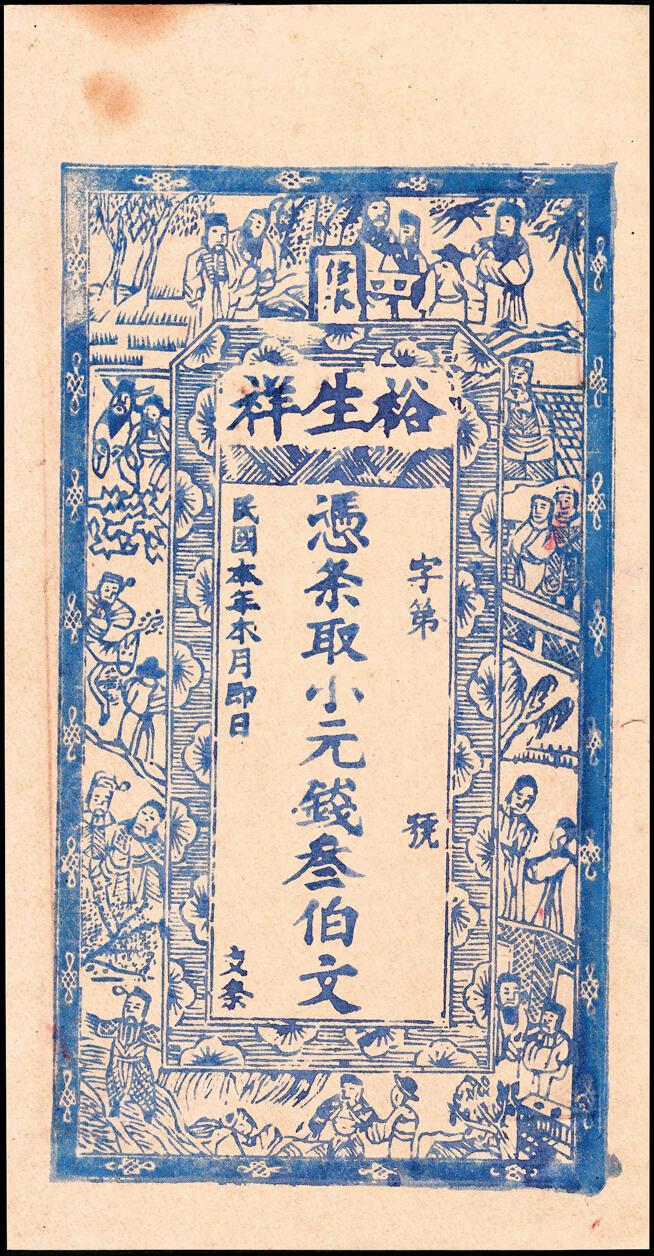 裕生祥
字第 號
憑条取小元錢叁伯文
民國本年本月即日 支条